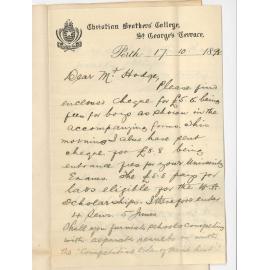 Christian Brothers' College,
St George's Terrace,
Perth 17 10 189
Dear Mr Hodge,
Please find
enclosed cheque for £5.6 being
fees for boys as shown in the
accompanying forms. This
morning I also have sent
cheque for £8.8 being
entrance fees for your University
Exams. The £5.6 pays for
lads eligible for the W.A
Scholarships. I therefore enter
4 Senr. 5 Junrs
Shall you furnish schools competing
with separate results or with
the "Competitive Order of Merit List"